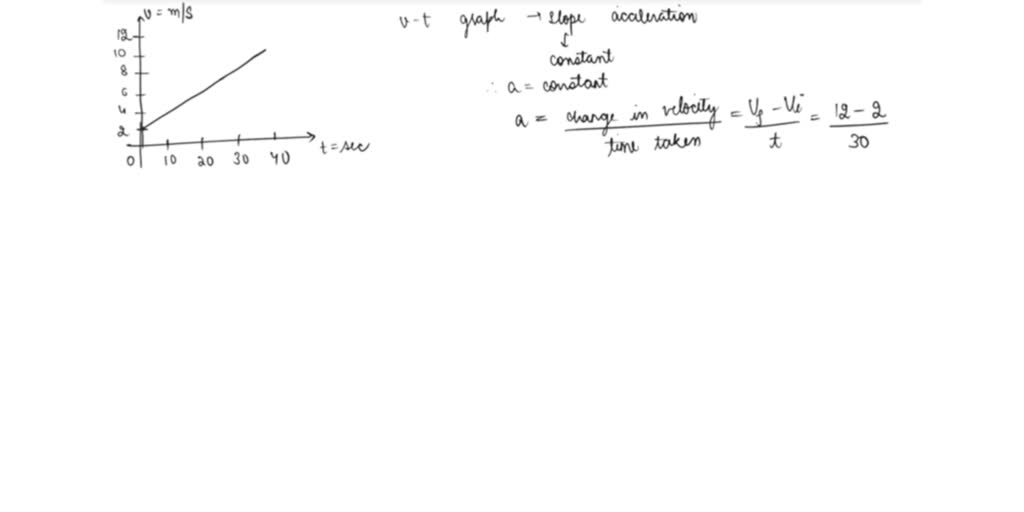 v = m/s
12
10
8
6
4
2
0 10 20 30 40 t = sec
v-t graph → slope acceleration
↓
constant
∴ a = constant
a = change in velocity / time taken = Vf - Vi / t = 12 - 2 / 30